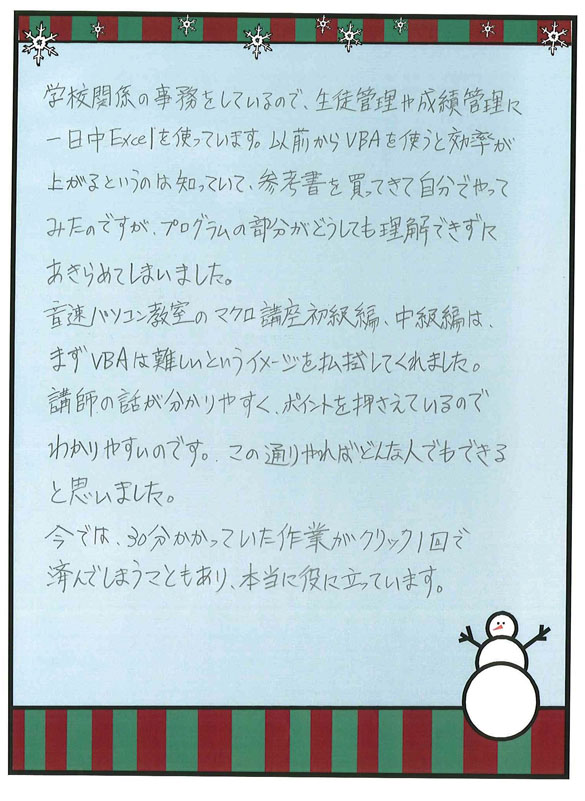 学校関係の事務をしているので、生徒管理や成績管理に
一日中Excelを使っています。以前からVBAを使うと効率が
上がるというのは知っていて、参考書を買ってきて自分でやって
みたのですが、プログラムの部分がどうしても理解できずに
あきらめてしまいました。
音速パソコン教室のマクロ講座初級編、中級編は、
まずVBAは難しいというイメージを払拭してくれました。
講師の話が分かりやすく、ポイントを押さえているので
わかりやすいのです。この通りやればどんな人でもできる
と思いました。
今では、30分かかっていた作業がクリック1回で
済んでしまうこともあり、本当に役に立っています。